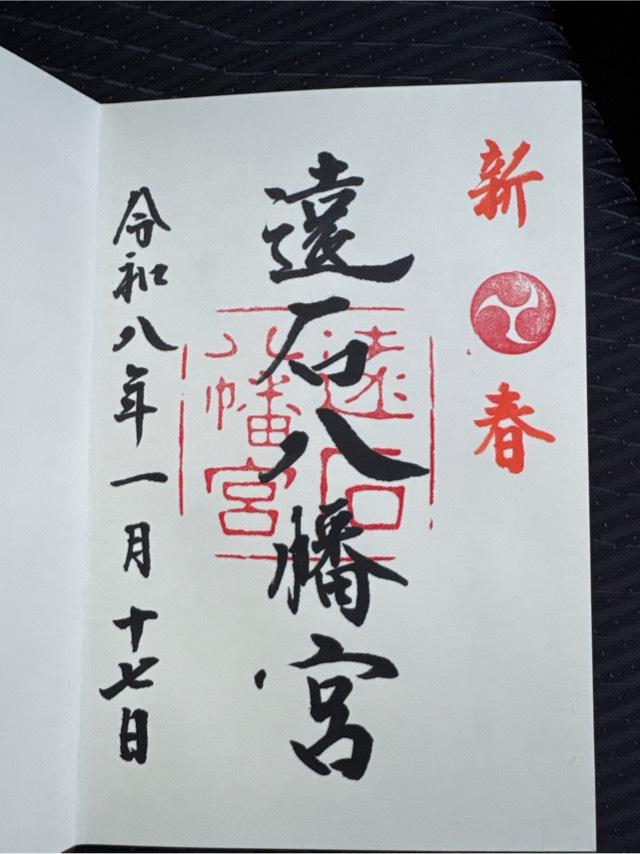 新春
遠石八幡宮
遠石
八幡宮
令和八年一月十七日